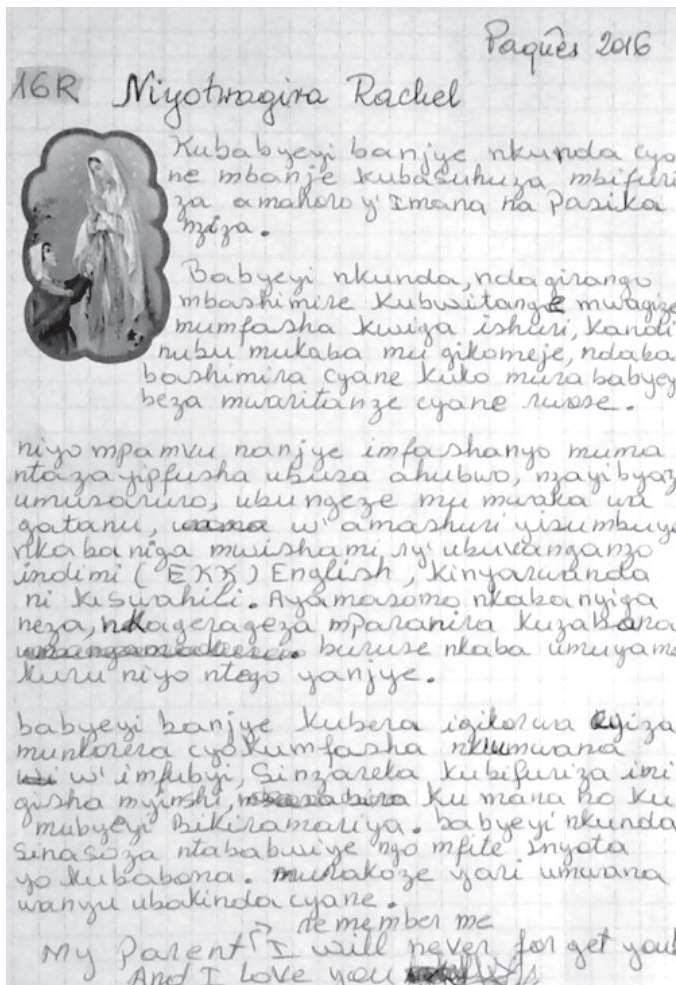 Paquês 2016
16R Niyotwagira Rachel
Kubabyeyi banjye nkunda cya
ne mbanje kubasuhuza mbifuri
za amahoro y'Imana na Pasika
nziza.
Babyeyi nkunda, ndagirango
mbashimire kubwitange mwagize
mumfasha kwiga ishuri, kandi
nubu mukaba mu gikomeje, ndaba
bashimira cyane kuko mura babyey
beza mwaritanze cyane rwose.
niyo mpamvu nanjye imfashanyo muma
ntaza yipfusha ubusa ahubwo, nzayibyaz
umusaruro, ubungeze mu mwaka wa
gatanu, w'amashuri yisumbuye
nkabaniga mwishami ry'ubuvanganzo
indimi (EKK) English, Kinyarwanda
ni Kiswahili. Ayamasomo nkabanyiga
neza, nkagerageza mparanira kuzabona
buruse nkaba umuyamo
kuru niyo ntego yanjye.
babyeyi banjye kubera igikorwa cyiza
munkorera cyokumfasha nkumwana
w'imfubyi, Sinzareka kubifuriza imi
gisha myinshi, ku mana no ku
mubyeyi Bikiramariya. babyeyi nkunda
sinasoza ntababwiye ngo mfite inyota
yo kubabona. murakoze yari umwana
wanyu ubakinda cyane.
remember me
My Parent I will never for get you
And I love you